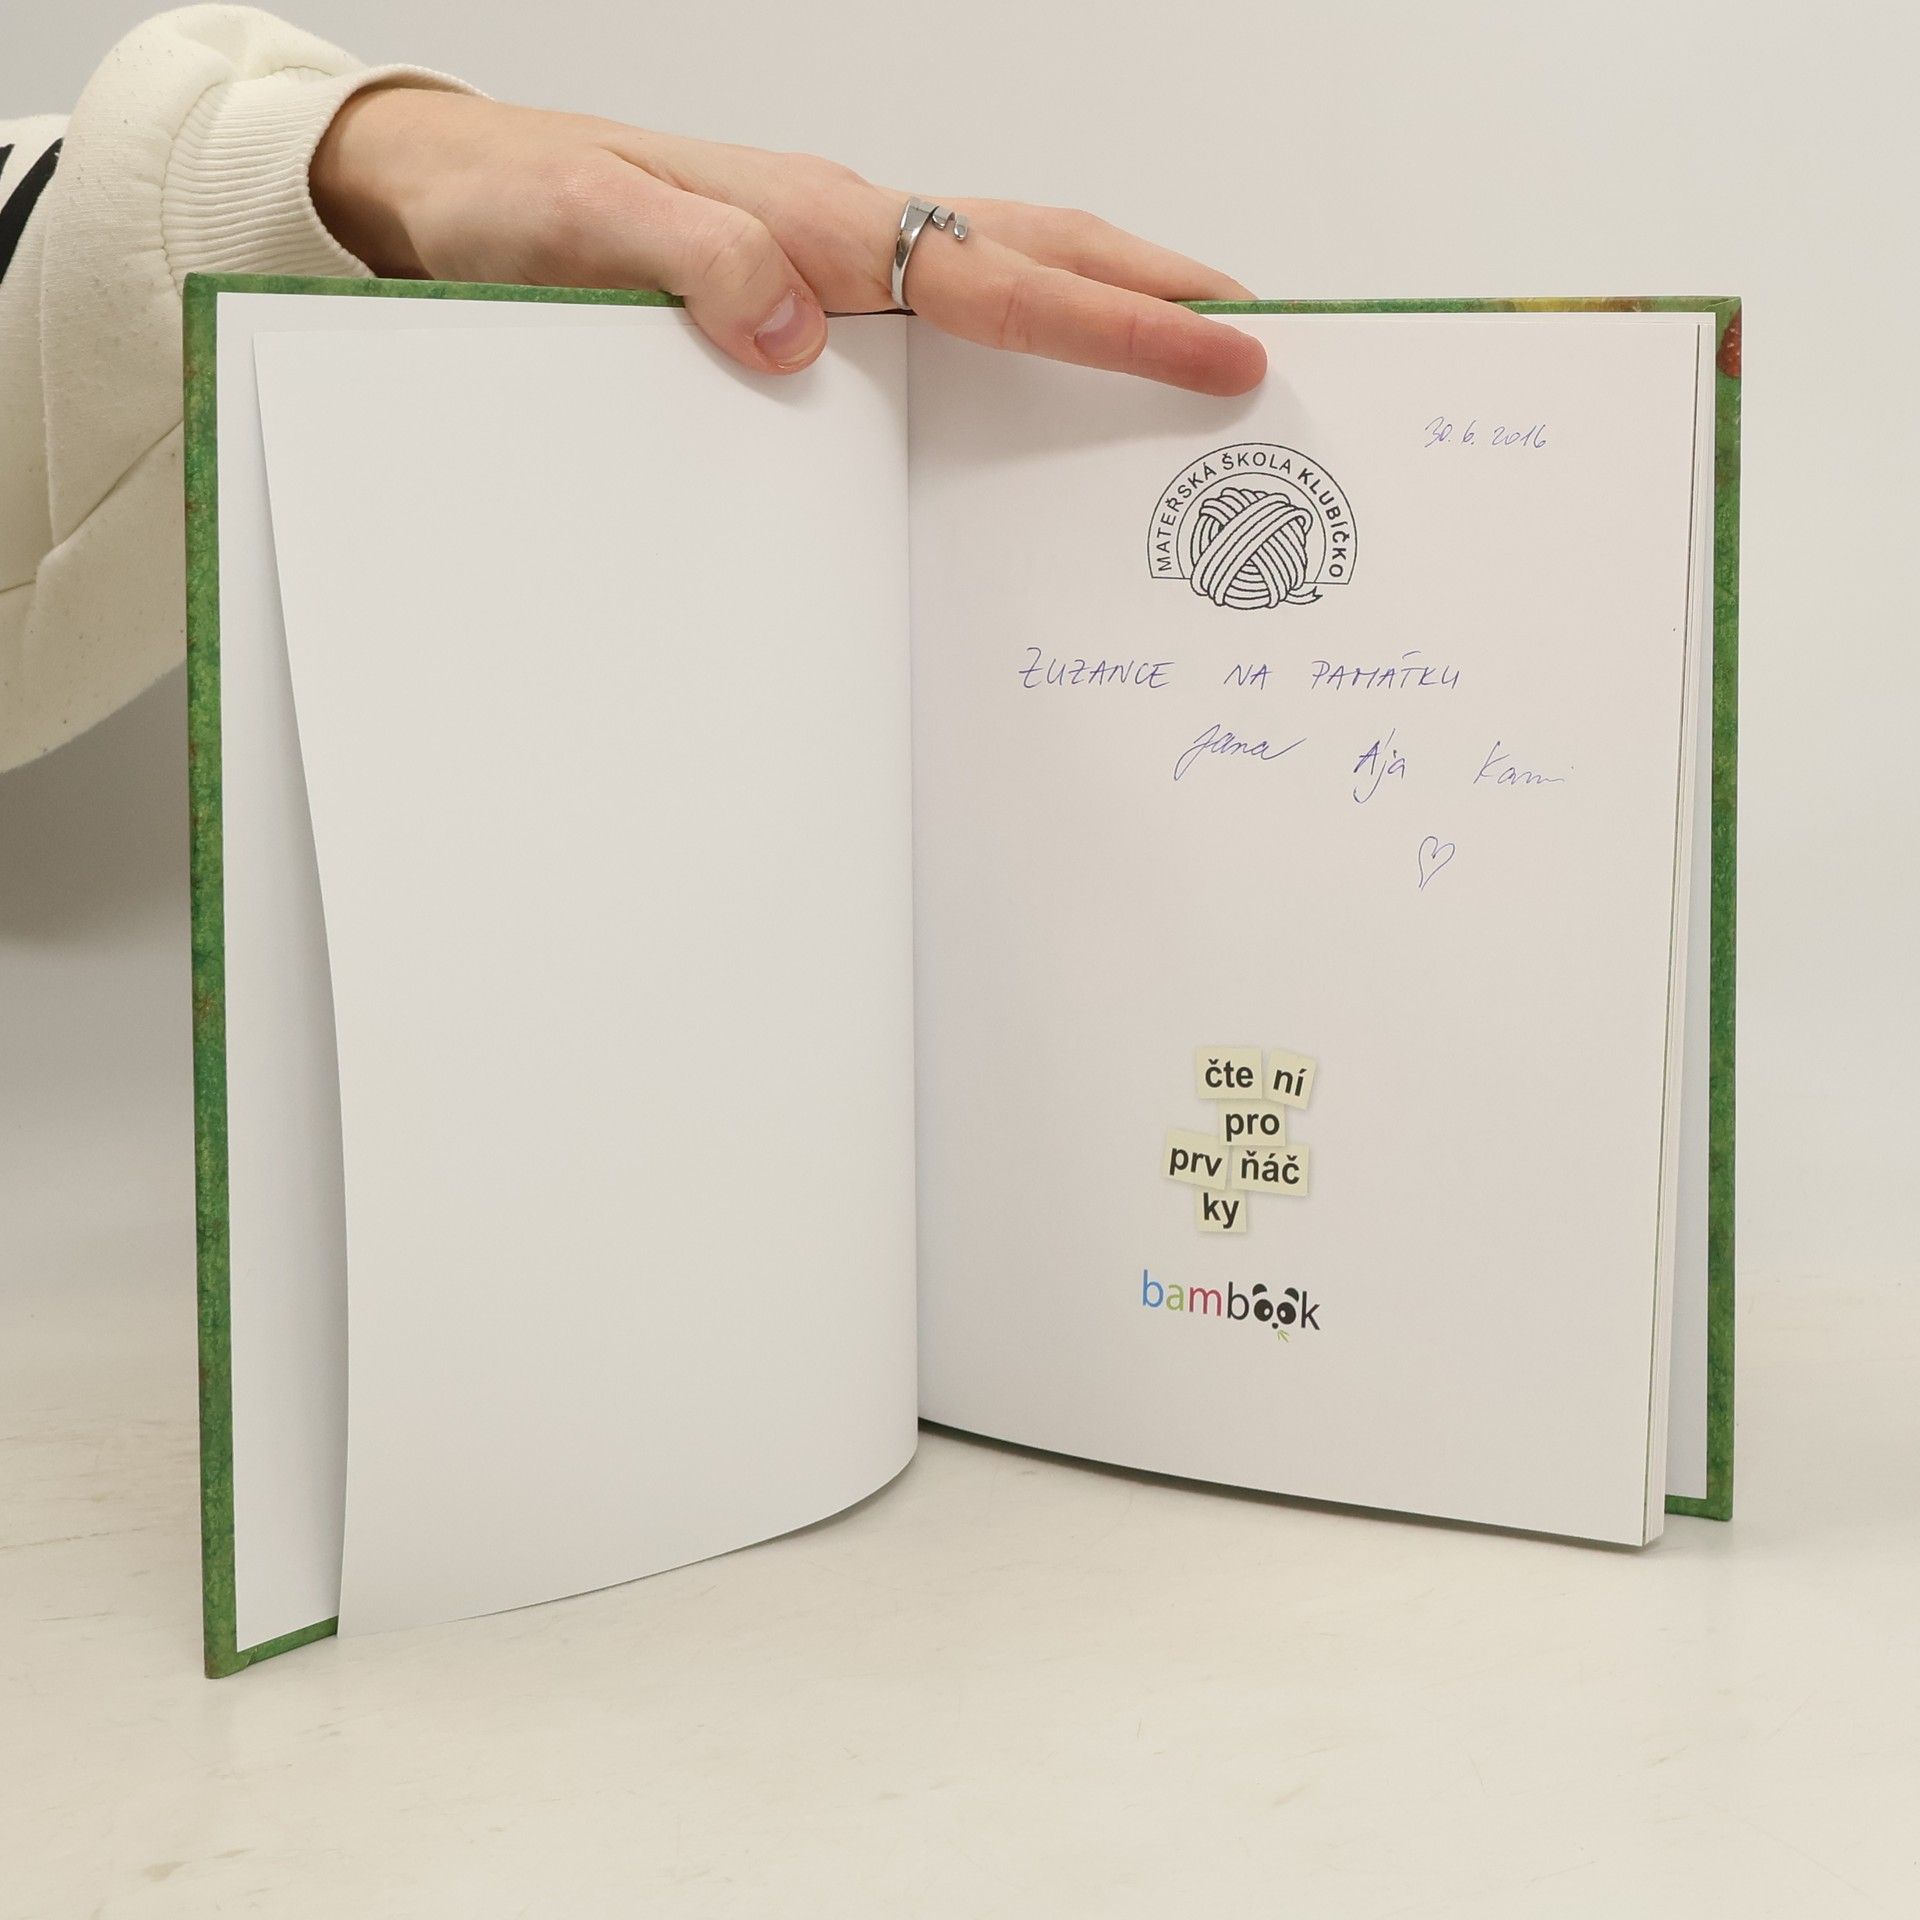 30. 6. 2016
MATEŘSKÁ ŠKOLA KLUBÍČKO
ZUZANCE NA PAMÁTKU
Jana Ája Kami
čte ní
pro
prv ňáč
ky
bambook